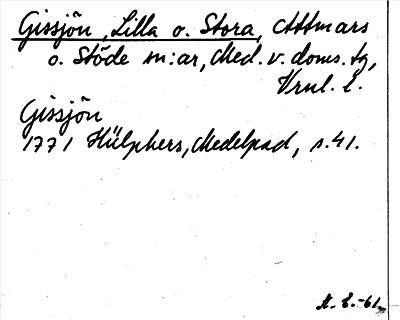 Gissjön, Lilla o. Stora, Attmars
o. Stöde sn:ar, Med. v. doms. tg,
Vrnl. l.
Gissjön
1771 Hülphers, Medelpad, s. 41.